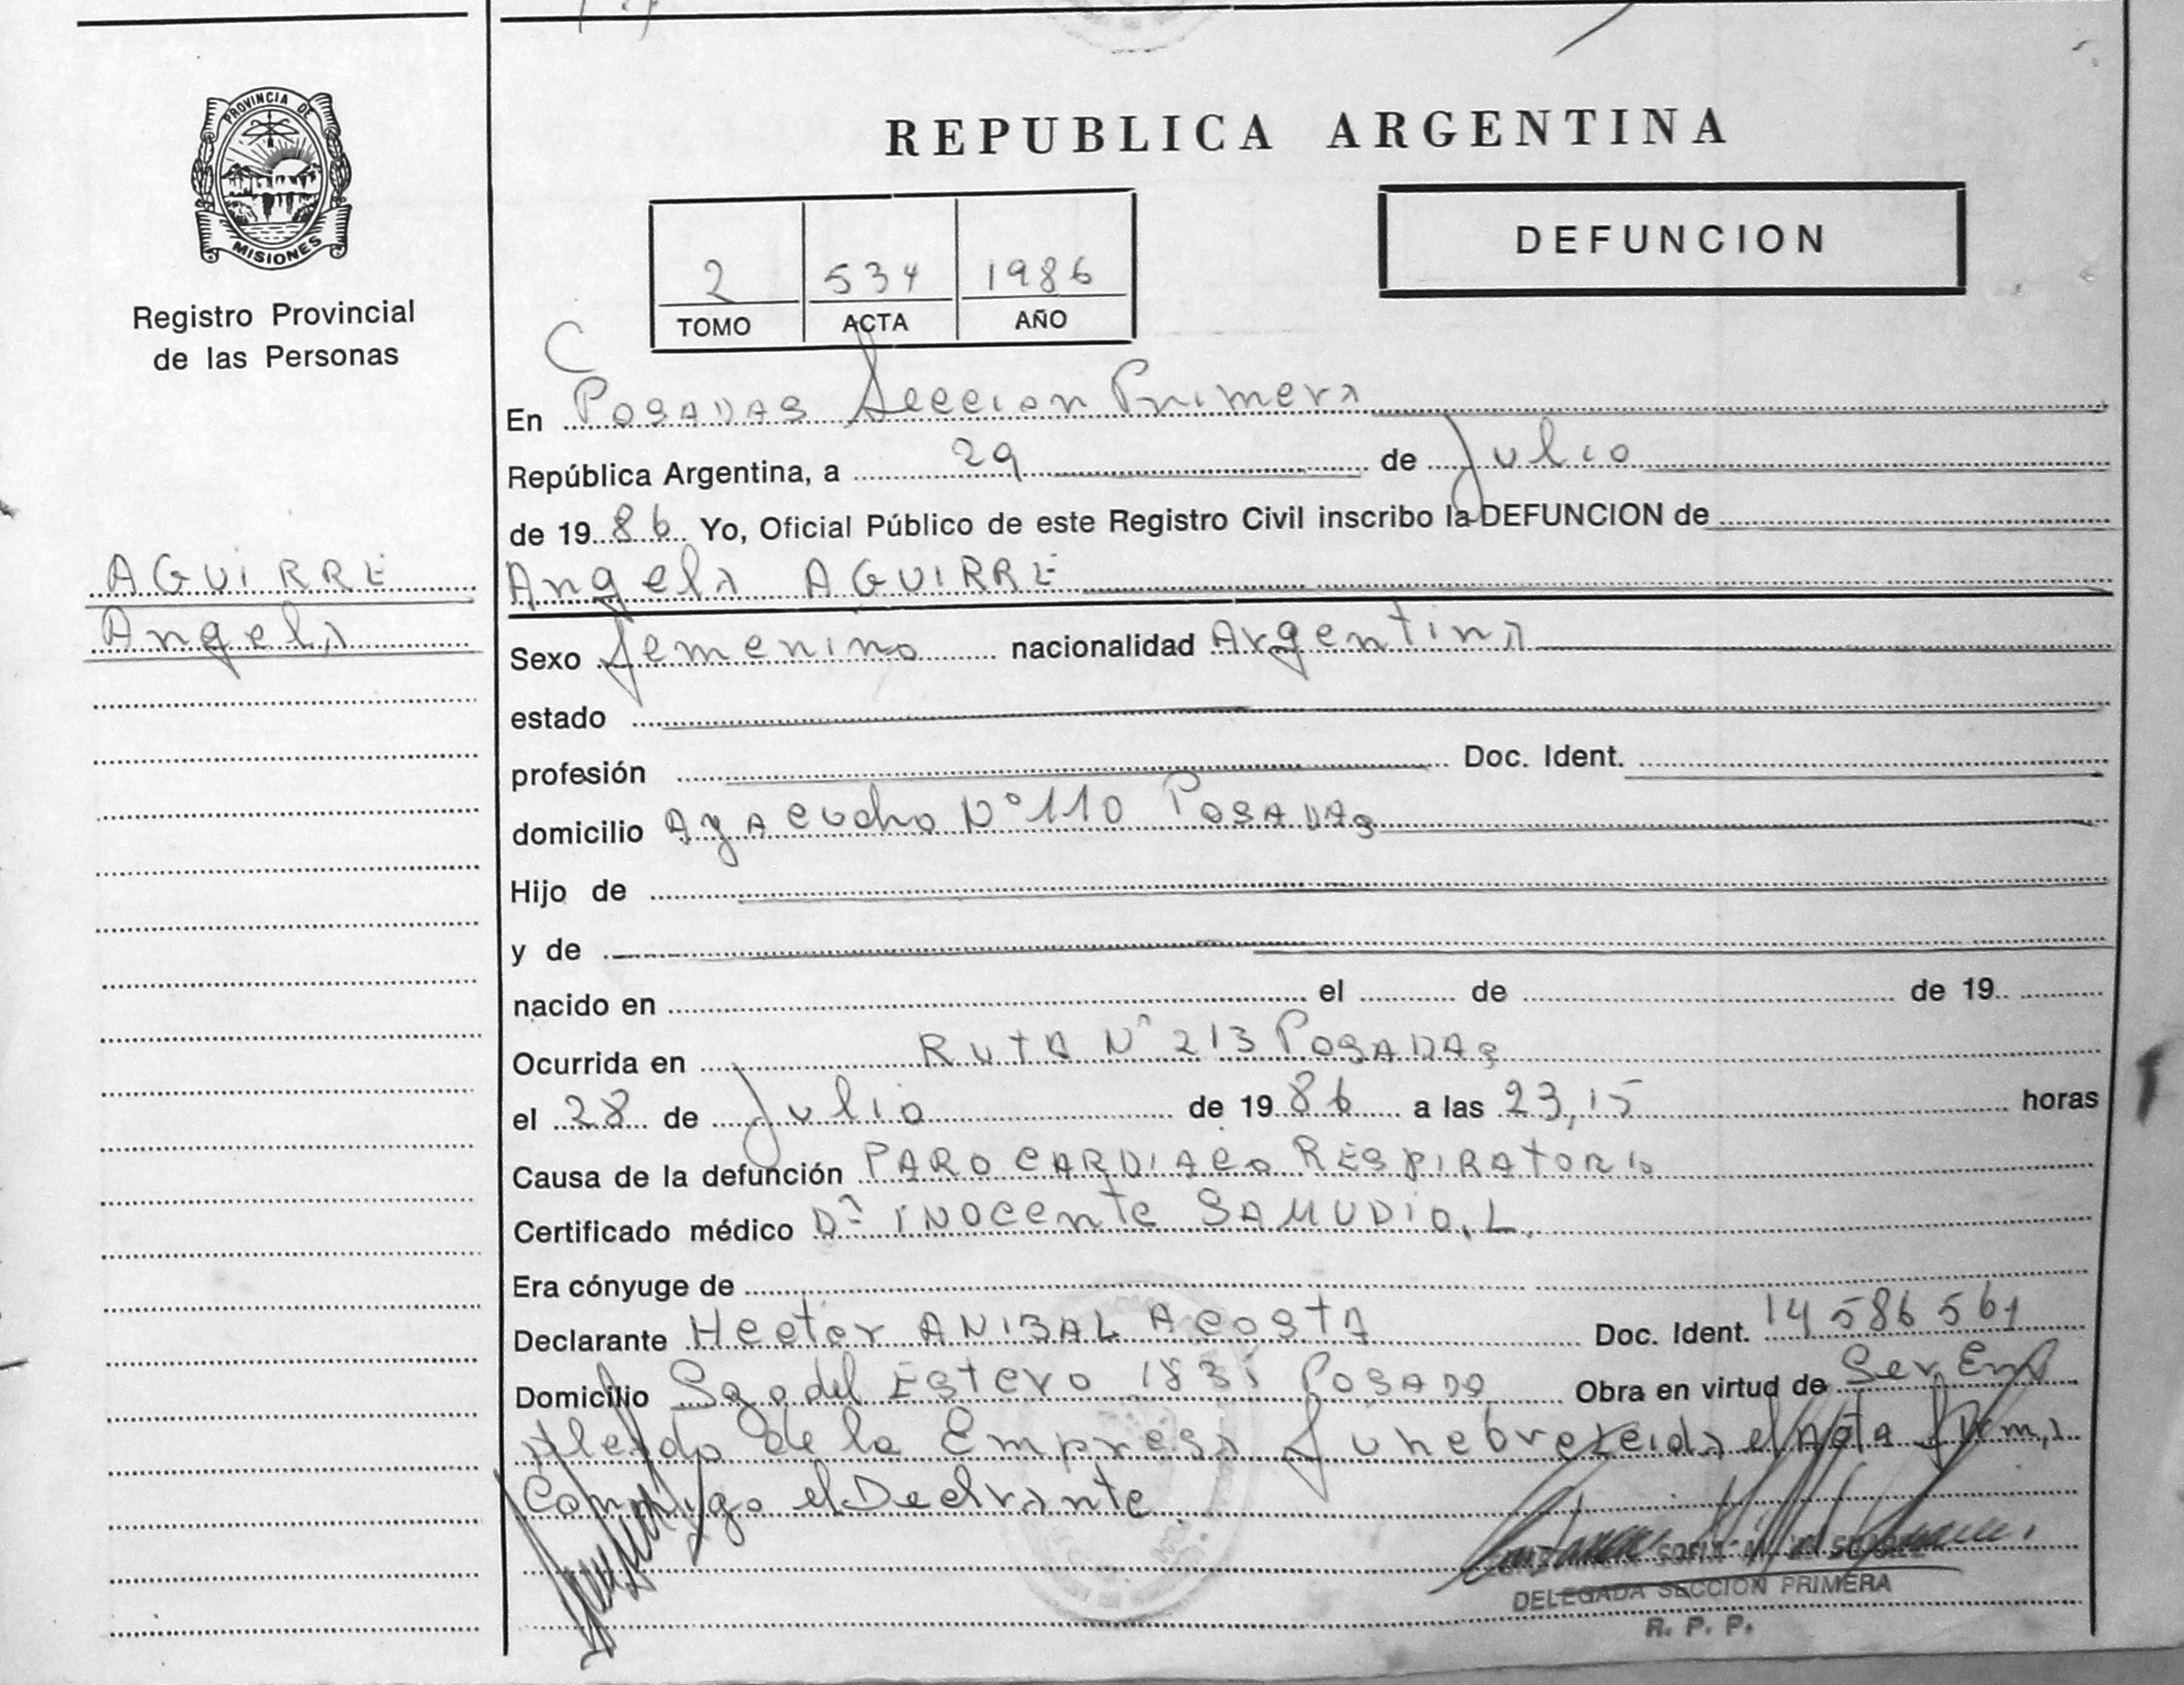 PROVINCIA DE
MISIONES
Registro Provincial
de las Personas
AGUIRRE
Angela
REPUBLICA ARGENTINA
2 534 1986
TOMO ACTA AÑO
DEFUNCION
C
En POSADAS Seccion Primera
República Argentina, a 29 de Julio
de 1986 Yo, Oficial Público de este Registro Civil inscribo la DEFUNCION de
Angela AGUIRRE
Sexo femenino nacionalidad Argentina
estado
profesión Doc. Ident.
domicilio Ayacucho Nº 110 POSADAS
Hijo de
y de
nacido en el de de 19
Ocurrida en RUTA Nº 213 POSADAS
el 28 de Julio de 1986 a las 23,15 horas
Causa de la defunción PARO CARDIACO RESPIRATORIO
Certificado médico Dr INOCENTE SAMUDIO, L.
Era cónyuge de
Declarante Hector ANIBAL ACOSTA Doc. Ident. 14586561
Domicilio Sgo del Estero POSADA Obra en virtud de Ser Em
pleado de la Empresa funebre Leida el Acta firma
Conmigo el Declarante
SOFIA
DELEGADA SECCION PRIMERA
R. P. P.